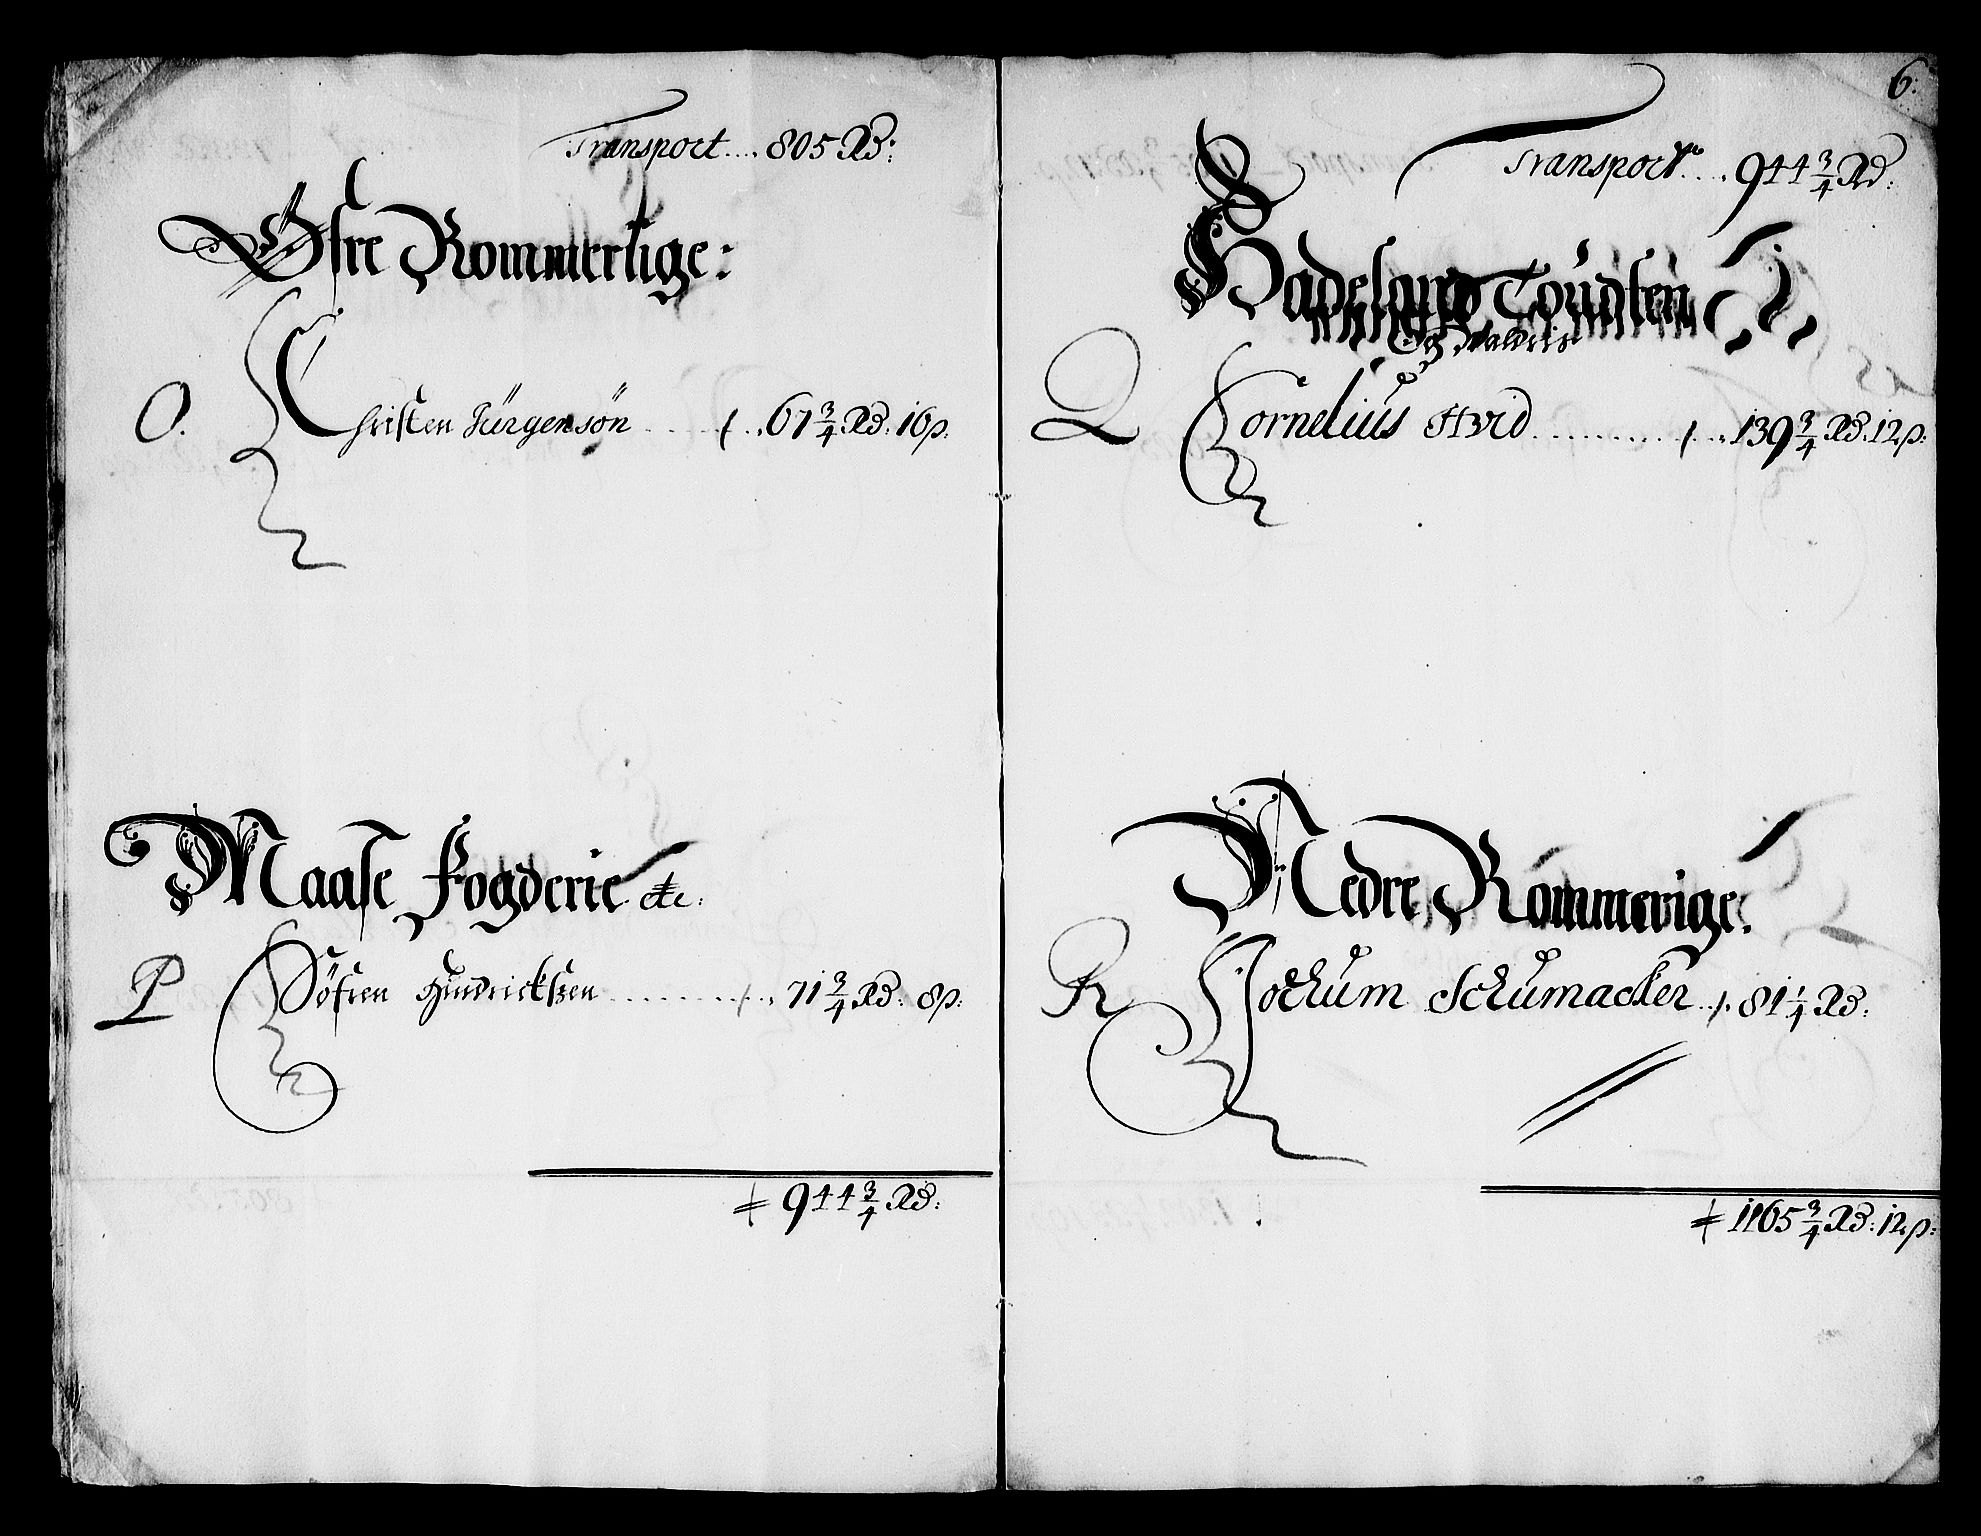 Transport .... 805 Rd:
Øfre Rommerige:
O. Christen Jürgensøn ..... 67 3/4 Rd: 16 β:
Maase Fogderie etc:
P Søfren Hindrickßen ........... 71 3/4 Rd: 8 β:
944 3/4 Rd:
6:
Transport .... 944 3/4 Rd:
Hadeland Toudten
Og Waldris
Q Cornelius Hvid ............ 139 3/4 Rd: 12 β:
Nedre Rommerige:
R Jochum Schumacker .. 81 1/4 Rd:
1165 3/4 Rd: 12 β: